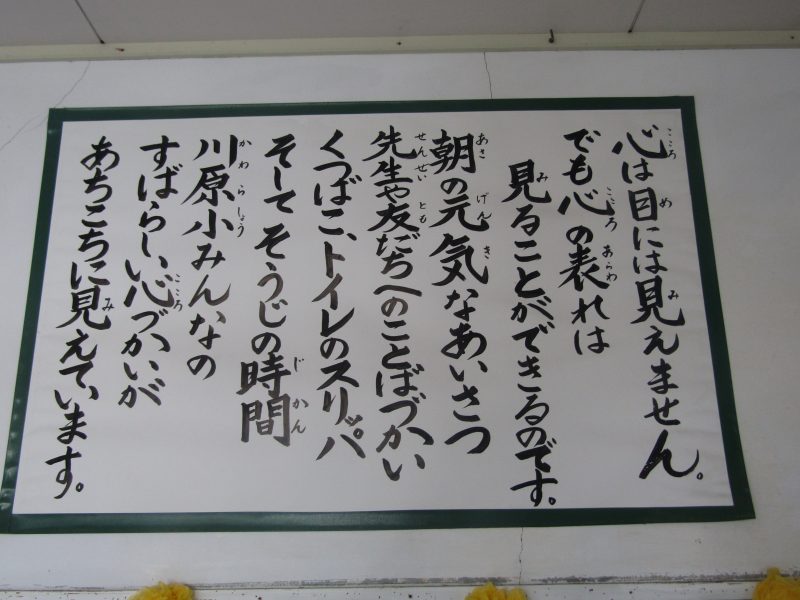 心は目には見えません。
でも心の表れは
見ることができるのです。
朝の元気なあいさつ
先生や友だちへのことばづかい
くつばこ、トイレのスリッパ
そして そうじの時間
川原小みんなの
すばらしい心づかいが
あちこちに見えています。